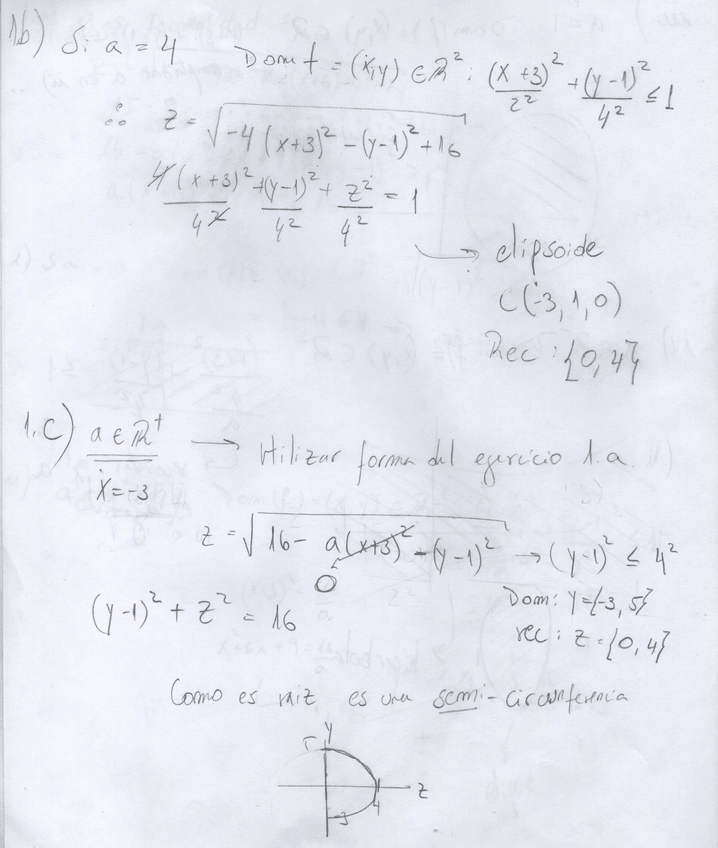 1b) Si a = 4 Dom f = (x,y) ∈ ℝ² : (x+3)²/2² + (y-1)²/4² ≤ 1
∴ z = √(-4(x+3)² - (y-1)² + 16)
4(x+3)²/4² + (y-1)²/4² + z²/4² = 1
→ elipsoide
C(-3, 1, 0)
Rec : {0, 4}
1.c) a ∈ ℝ⁺ → Utilizar forma del ejercicio 1.a
x = -3
z = √(16 - a(x+3)² - (y-1)²) → (y-1)² ≤ 4²
0
(y-1)² + z² = 16
Dom: y = {-3, 5}
rec : z = {0, 4}
Como es raiz es una semi-circunferencia
y
5
z
4
-3